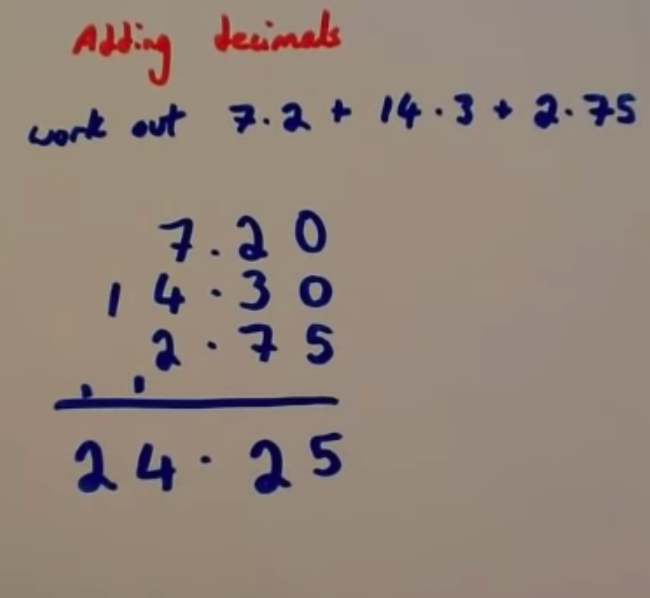 Adding decimals
work out 7.2 + 14.3 + 2.75
7.20
14.30
2.75
1 1
24.25